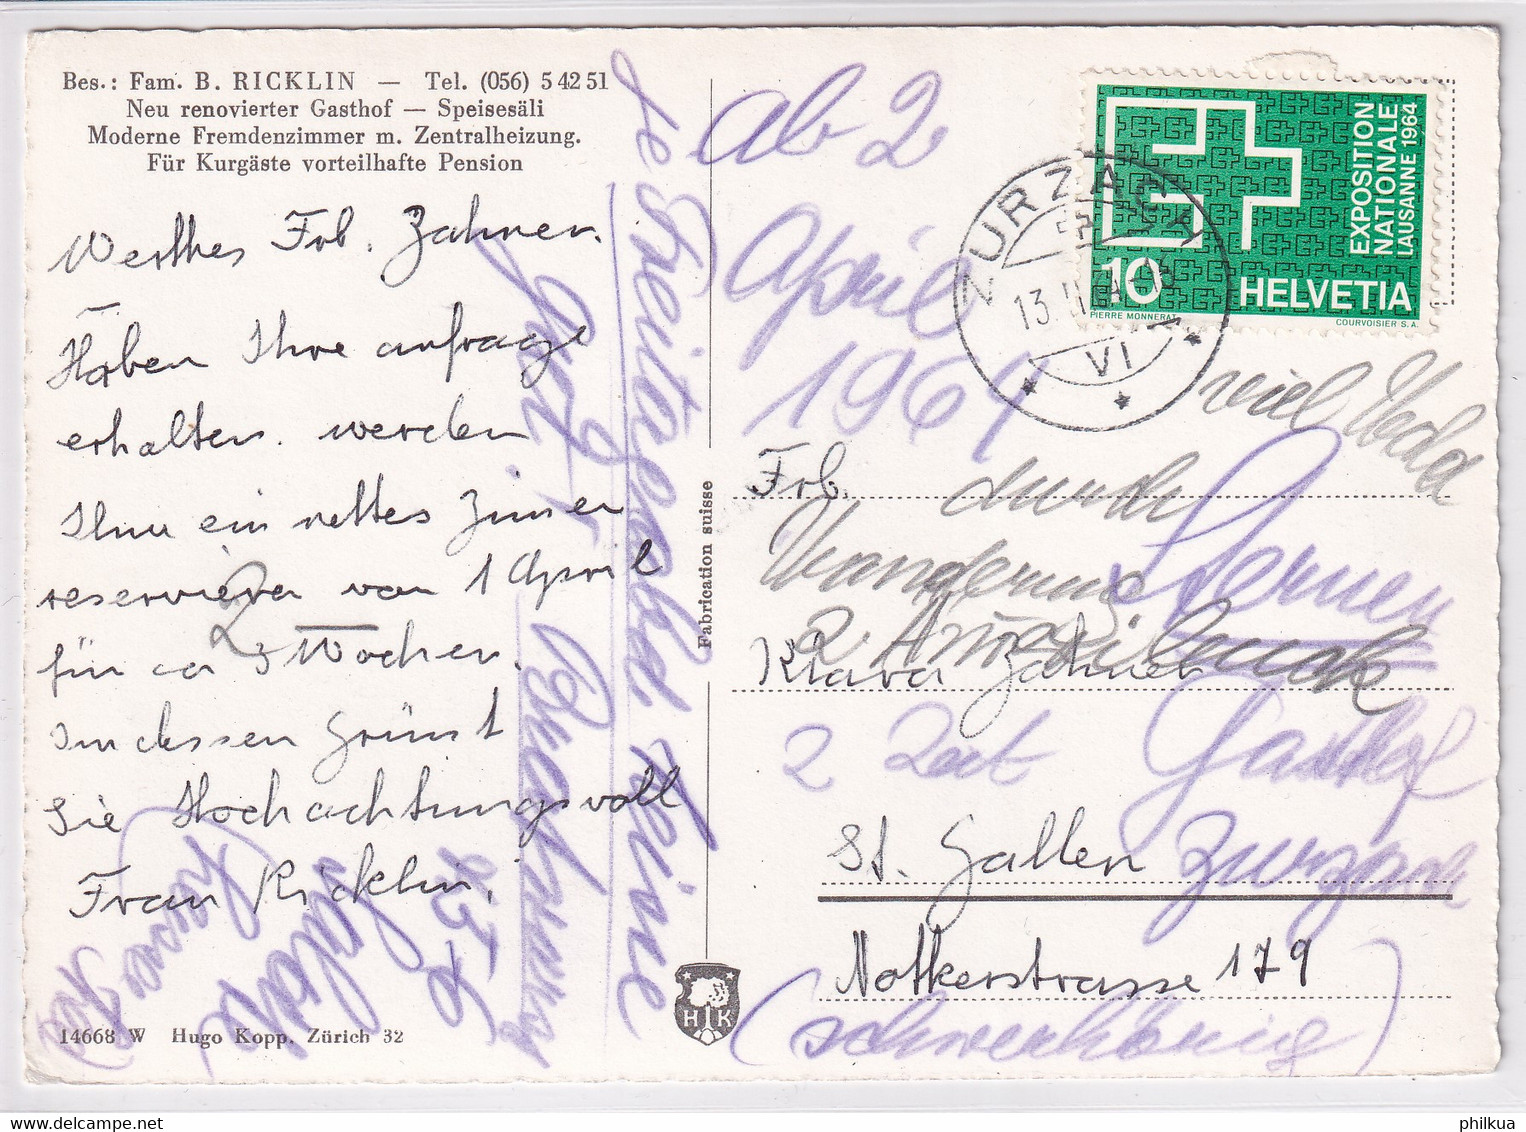 Bes.: Fam. B. RICKLIN — Tel. (056) 5 42 51
Neu renovierter Gasthof — Speisesäli
Moderne Fremdenzimmer m. Zentralheizung.
Für Kurgäste vorteilhafte Pension
Werthes Frl. Zahner.
Haben Ihre anfrage
erhalten. werden
Ihnen ein nettes Zimer
reservieren von 1 April
2
für ca 3 Wochen.
Indessen Grüsst
Sie Hochachtungsvoll
Frau Ricklin.
14668 W Hugo Kopp. Zürich 32
Fabrication suisse
H K
ab 2
April
1964
EXPOSITION
NATIONALE
LAUSANNE 1964
10
HELVETIA
PIERRE MONNERAT
COURVOISIER S.A.
ZURZACH
13.
VI
viel
Frl.
durch
Sternen
Klara Zahner
2
Gasthof
St. Gallen
Zurzach
Notkerstrasse 179
(schwerhörig)
je Freitagabend keine
www.delcampe.net
philkua